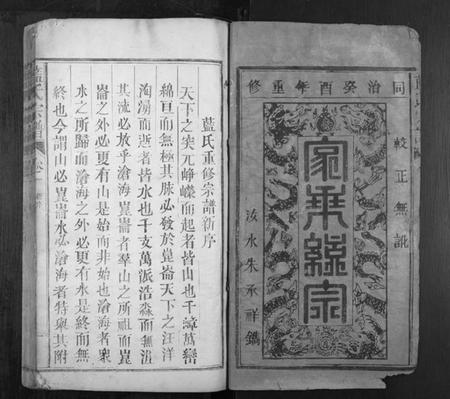 同治癸酉年重修
較正無訛
家乘綿宗
汝水朱承祥鐫
藍氏重修宗譜新序
天下之突兀崢嶸而起者皆山也千巒萬巒
綿亘而無極其脉必發於崑崙天下之汪洋
洶湧而逝者皆水也千支萬派浩淼而無涯
其流必放乎滄海崑崙者羣山之所祖而崑
崙之外必更有山是始而非始也滄海者衆
水之所歸而滄海之外必更有水是終而無
終也今謂山必崑崙水必滄海者特與其附
藍氏宗譜